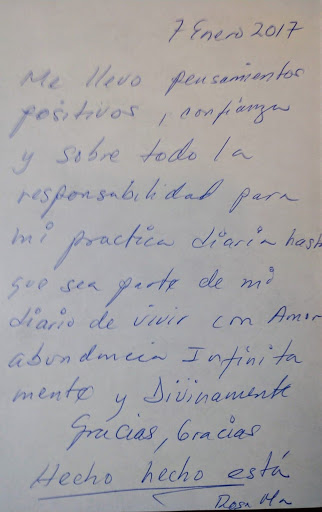 7 Enero 2017
Me llevo pensamientos
positivos, confianza
y sobre todo la
responsabilidad para
mi practica diaria hasta
que sea parte de mi
diario de vivir con Amor
abundancia Infinita
mente y Divinamente
Gracias, Gracias
Hecho hecho está
Rosa Ma